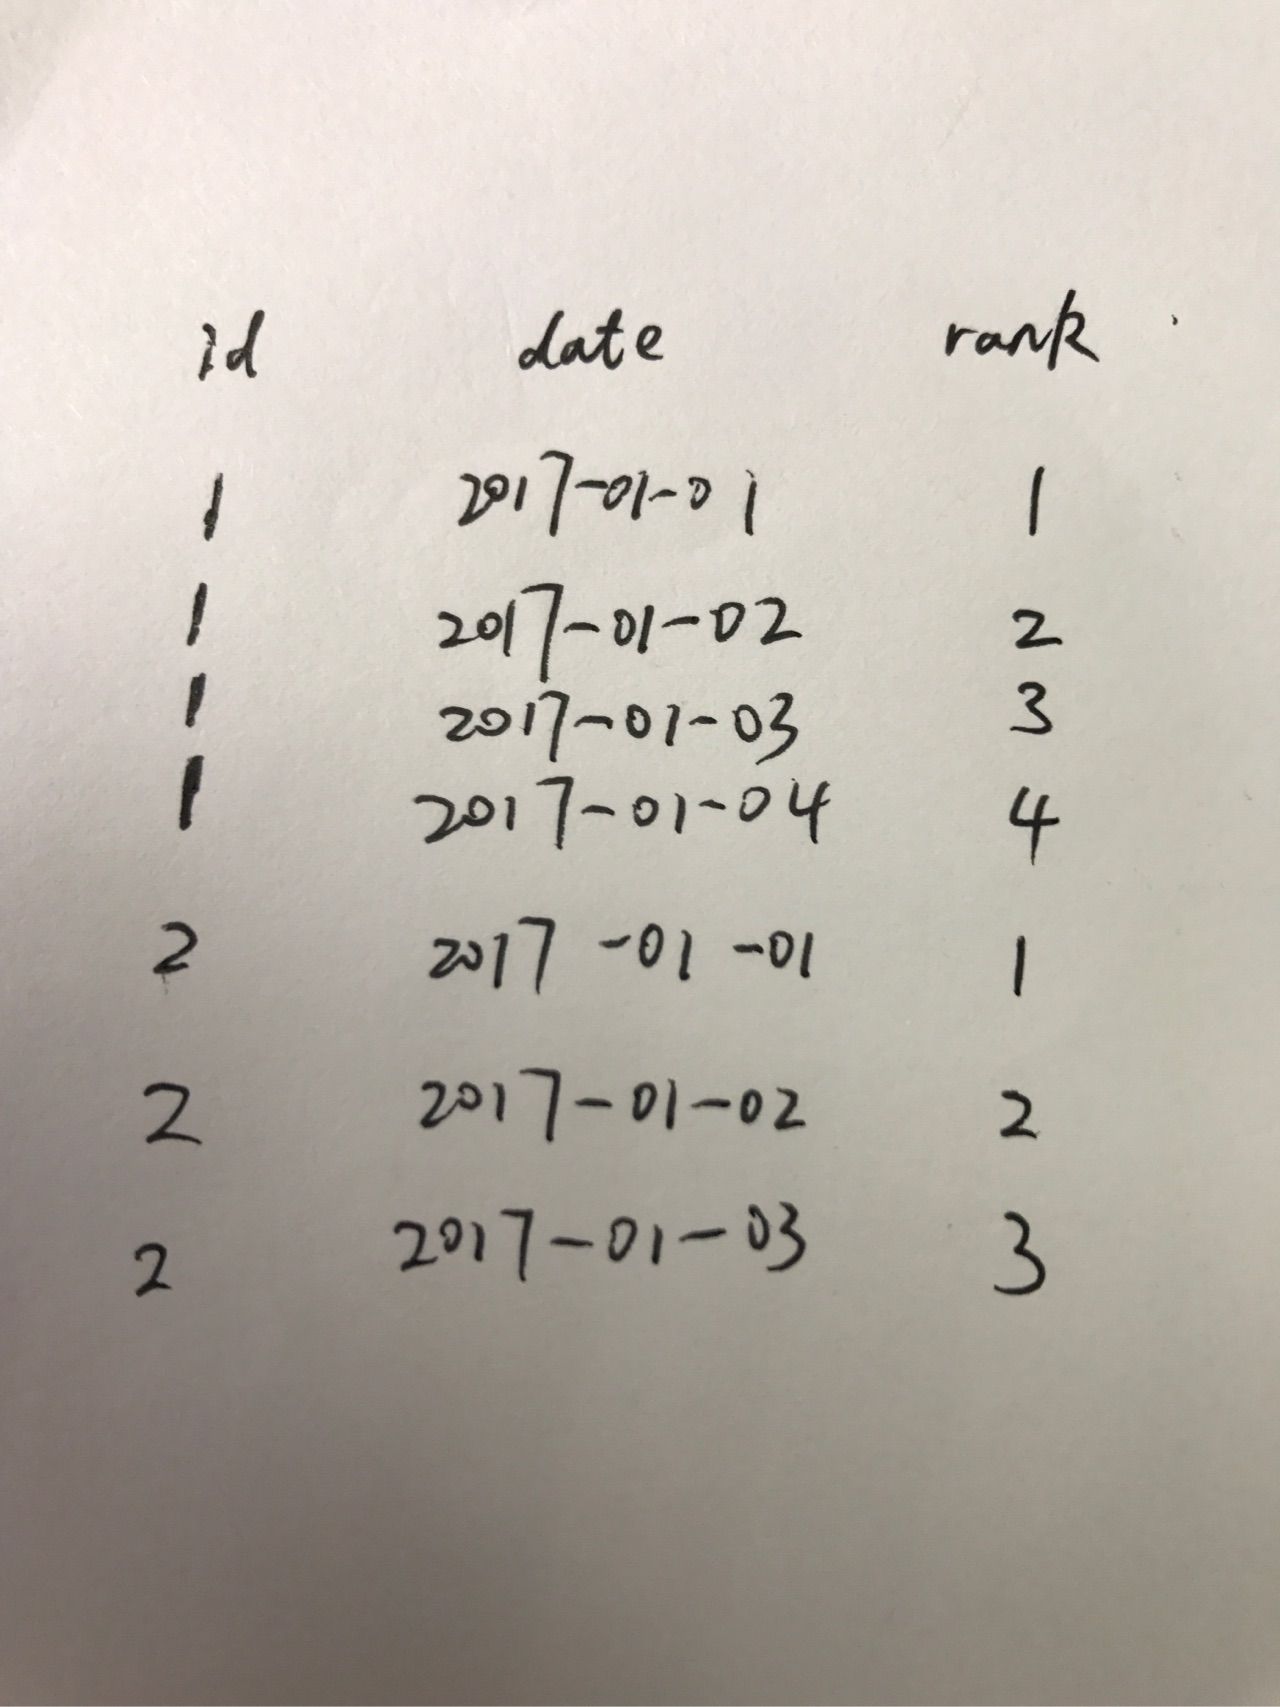 id date rank
1 2017-01-01 1
1 2017-01-02 2
1 2017-01-03 3
1 2017-01-04 4
2 2017-01-01 1
2 2017-01-02 2
2 2017-01-03 3